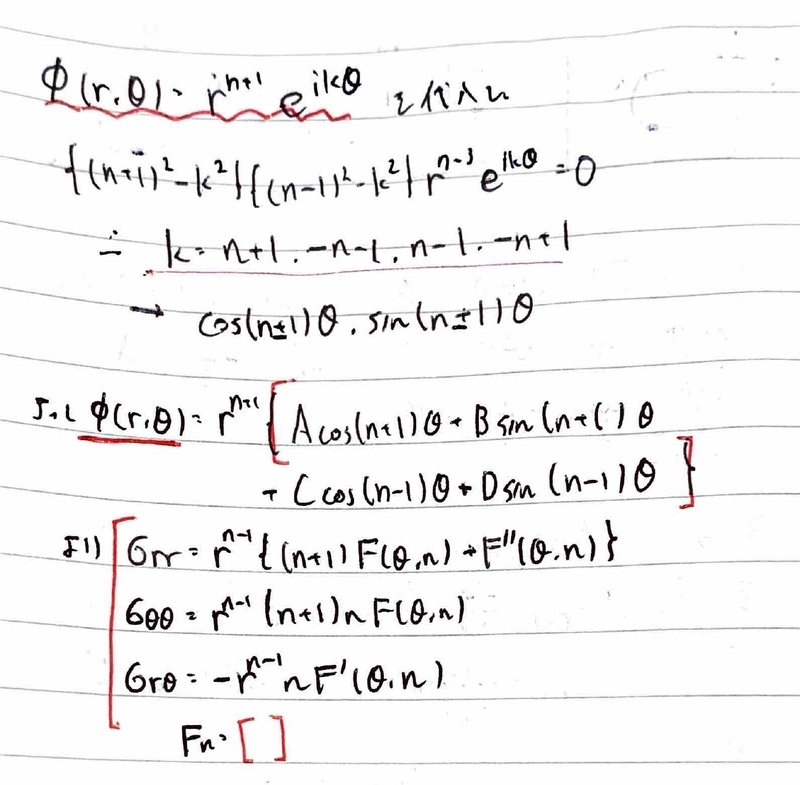 Φ(r,θ) = r^{n+1} e^{ikθ} を代入し
{(n+1)^2 - k^2}{(n-1)^2 - k^2} r^{n-3} e^{ikθ} = 0
∴ k = n+1, -n-1, n-1, -n+1
→ cos(n±1)θ, sin(n±1)θ
φ(r,θ) = r^{n+1} [ A cos(n+1)θ + B sin(n+1)θ
+ C cos(n-1)θ + D sin(n-1)θ ]
より σrr = r^{n-1} {(n+1) F(θ,n) + F''(θ,n)}
σθθ = r^{n-1} (n+1)n F(θ,n)
σrθ = -r^{n-1} n F'(θ,n)
Fn = [ ]